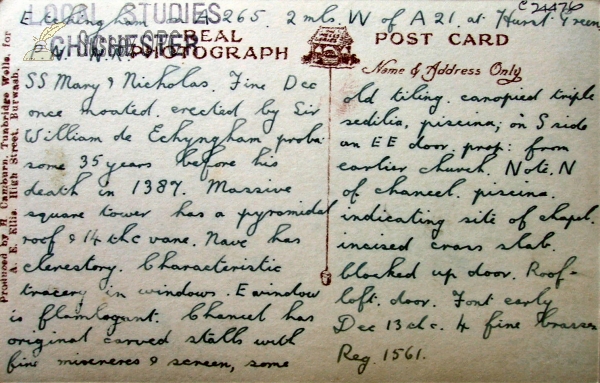 C 24476
Etchingham on A 265. 2 mls. W of A 21. at Hurst Green
LOCAL STUDIES
CHICHESTER
REAL
PHOTOGRAPH
POST CARD
Name & Address Only
Produced by H. Camburn, Tunbridge Wells, for
A. E. Ellis, High Street, Burwash.
SS Mary & Nicholas. Fine Dec
once moated. erected by Sir
William de Echyngham, proba.
some 35 years before his
death in 1387. Massive
square tower has a pyramidal
roof & 14thc vane. Nave has
clerestory. Characteristic
tracery in windows. E window
is flamboyant. Chancel has
original carved stalls with
fine misereres & screen, some
old tiling. canopied triple
sedilia, piscina; on S side
an EE door. prop: from
earlier church. Note. N
of chancel. piscina.
indicating site of chapel.
incised cross slab.
blocked up door. Roof-
loft. door. Font early
Dec 13th c. 4 fine brasses
Reg. 1561.